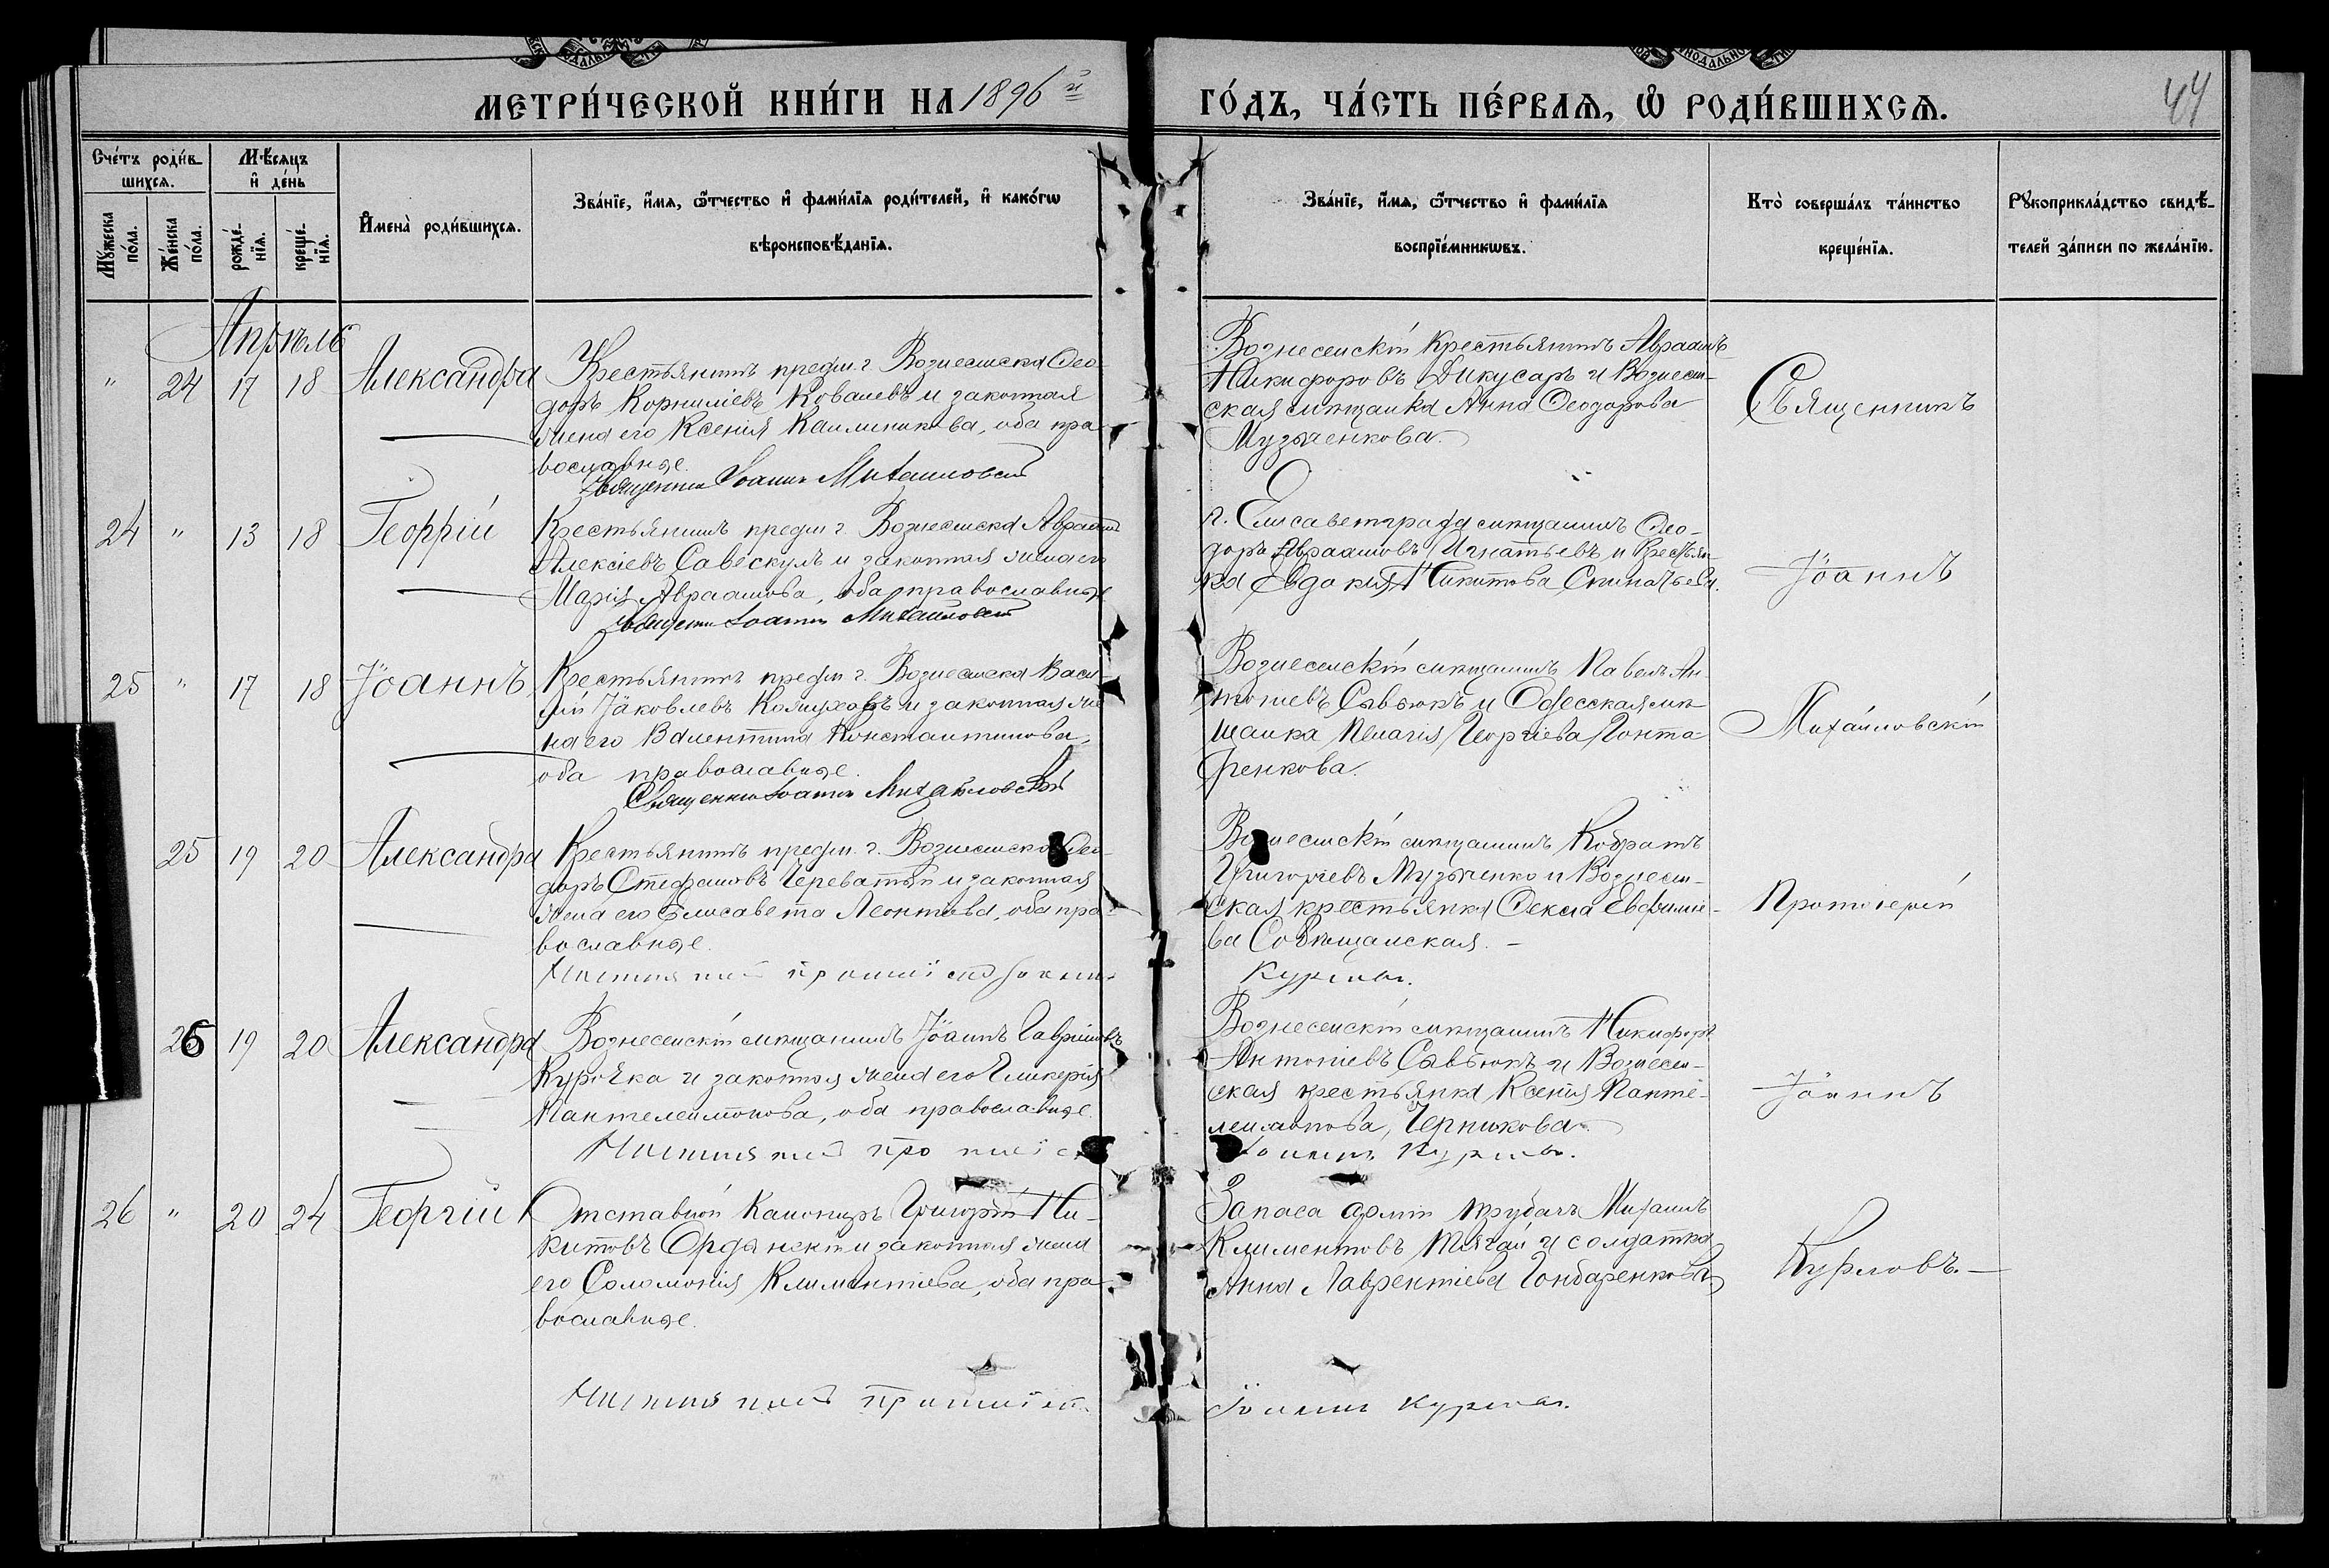 МЕТРИ́ЧЕСКОЙ КНИ́ГИ НА 1896 й
ГО́ДЪ, ЧА́СТЬ ПЕ́РВАѦ, Ѡ РОДИ́ВШИХСѦ.
44
Счетъ роди́в-
шихсѧ.
Мѣсѧцъ
и де́нь
Мꙋжеска
по́ла.
Же́нска
по́ла.
рожде́-
нїѧ.
креще́-
нїѧ.
Имена̀ роди́вшихсѧ.
Зва́нїе, и́мѧ, ѻ́тчество и фами́лїѧ роди́телей, и како́гѡ
вѣроисповѣ́данїѧ.
Зва́нїе, и́мѧ, ѻ́тчество и фами́лїѧ
воспрїе́мникѡвъ.
Кто̀ соверша́лъ та́инство
креще́нїѧ.
Рꙋкоприкла́дство свидѣ́-
телей за́писи по жела́нїю.
Апрѣль
" 24 17 18 Александра
Крестьянинъ предм. г. Вознесенска Ѳео-
доръ Корниліевъ Ковалевъ и законная
жена его Ксенія Каллиникова, оба пра-
вославные.
Священникъ Іоаннъ Михайловскій
Вознесенскій крестьянинъ Авраамъ
Никифоровъ Дикусаръ и Вознесен-
ская мѣщанка Анна Ѳеодорова
Музыченкова.
Священникъ
24 " 13 18 Георгій
Крестьянинъ предм г. Вознесенска Авраамъ
Алексіевъ Савескулъ и законная жена его
Марія Авраамова, оба православные
Священникъ Іоаннъ Михайловскій
г. Елисаветграда мѣщанинъ Ѳео-
доръ Авраамовъ Игнатьевъ и крестьян-
ка Евдокія Никитова
Іоаннъ
25 " 17 18 Іоаннъ
Крестьянинъ предм г. Вознесенска Васи-
лій Іаковлевъ Кожуховъ и законная же-
на его Валентина Константинова,
оба православные.
Священникъ Іоаннъ Михайловскій
Вознесенскій мѣщанинъ Павелъ Ан-
тоніевъ Савьюкъ и Одесская мѣ-
щанка Пелагія Георгіева Гонта-
ренкова.
Михайловскій
25 19 20 Александра
Крестьянинъ предм. г. Вознесенска Ѳео-
доръ Стефановъ Череватый и законная
жена его Елисавета Леонтіева, оба пра-
вославные.
Вознесенскій мѣщанинъ Кодратъ
Григоріевъ Музыченко и Вознесен-
ская крестьянка Ѳекла Евфиміе-
ва
Курловъ.
Протоіерей
26 19 20 Александра
Вознесенскій мѣщанинъ Іоаннъ Гавріиловъ
Курочка и законная жена его Гликерія
Пантелеимонова, оба православные.
Вознесенскій мѣщанинъ Никифоръ
Антоніевъ Савьюкъ и Вознесен-
ская крестьянка Ксенія Панте-
леимонова Черникова.
Іоаннъ Курловъ.
Іоаннъ
26 " 20 24 Георгій
Отставной Канониръ Григорій Ни-
китовъ и законная жена
его Соломонія Климентіева, оба пра-
вославные.
Запаса арміи трубачъ Михаилъ
Климентовъ и солдатка
Анна Лаврентіева Гонбаренкова
Курловъ.
Іоаннъ Курловъ.